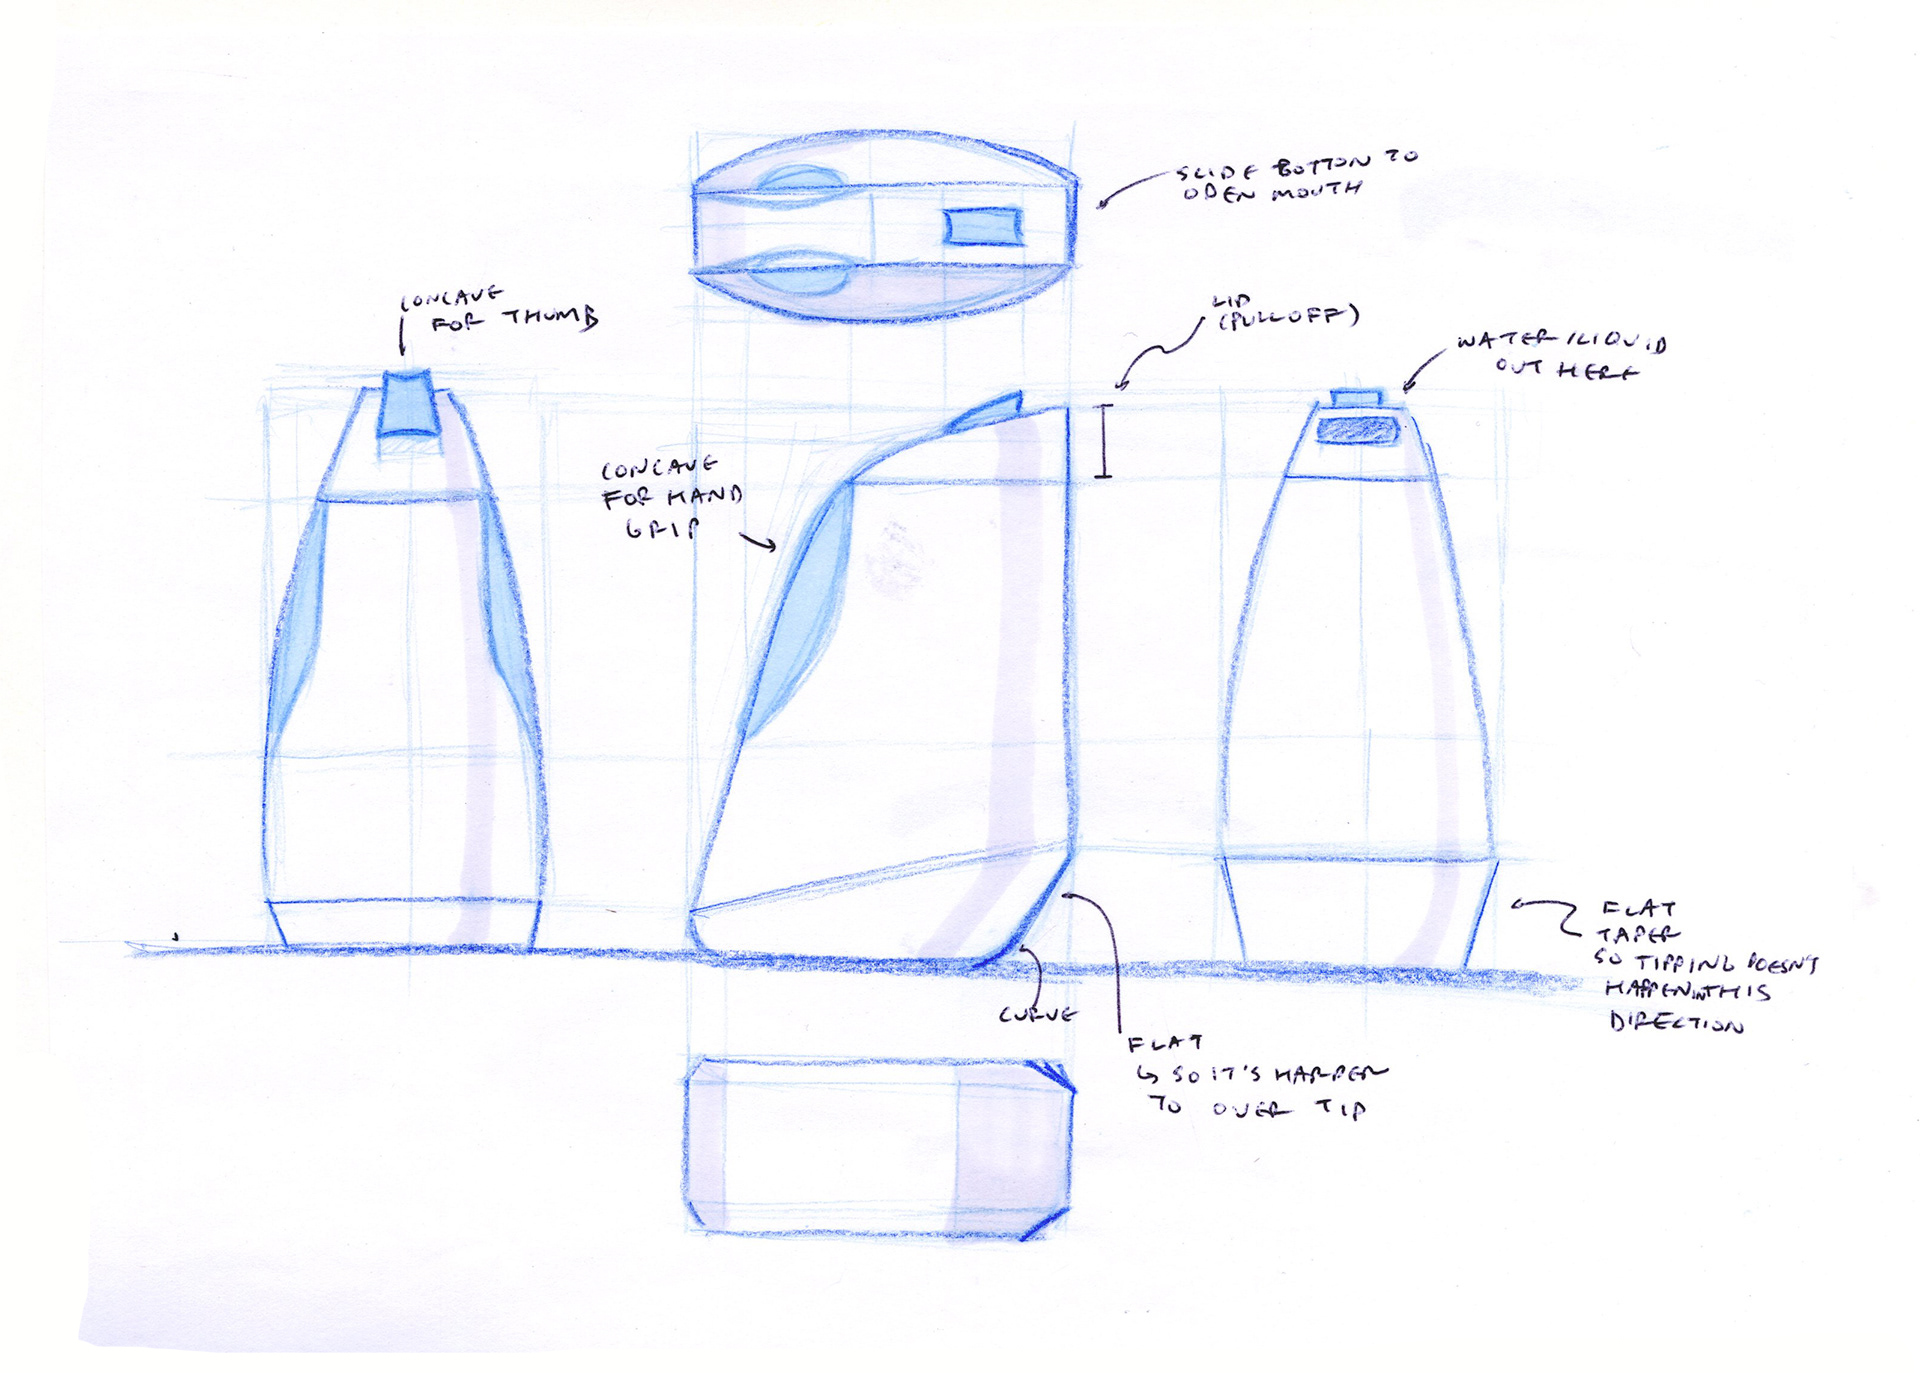 SLIDE BUTTON TO
OPEN MOUTH
CONCAVE
FOR THUMB
LID
(PULL OFF)
WATER/LIQUID
OUT HERE
CONCAVE
FOR HAND
GRIP
FLAT
TAPER
SO TIPPING DOESN'T
HAPPEN IN THIS
DIRECTION
CURVE
FLAT
↳ SO IT'S HARDER
TO OVER TIP